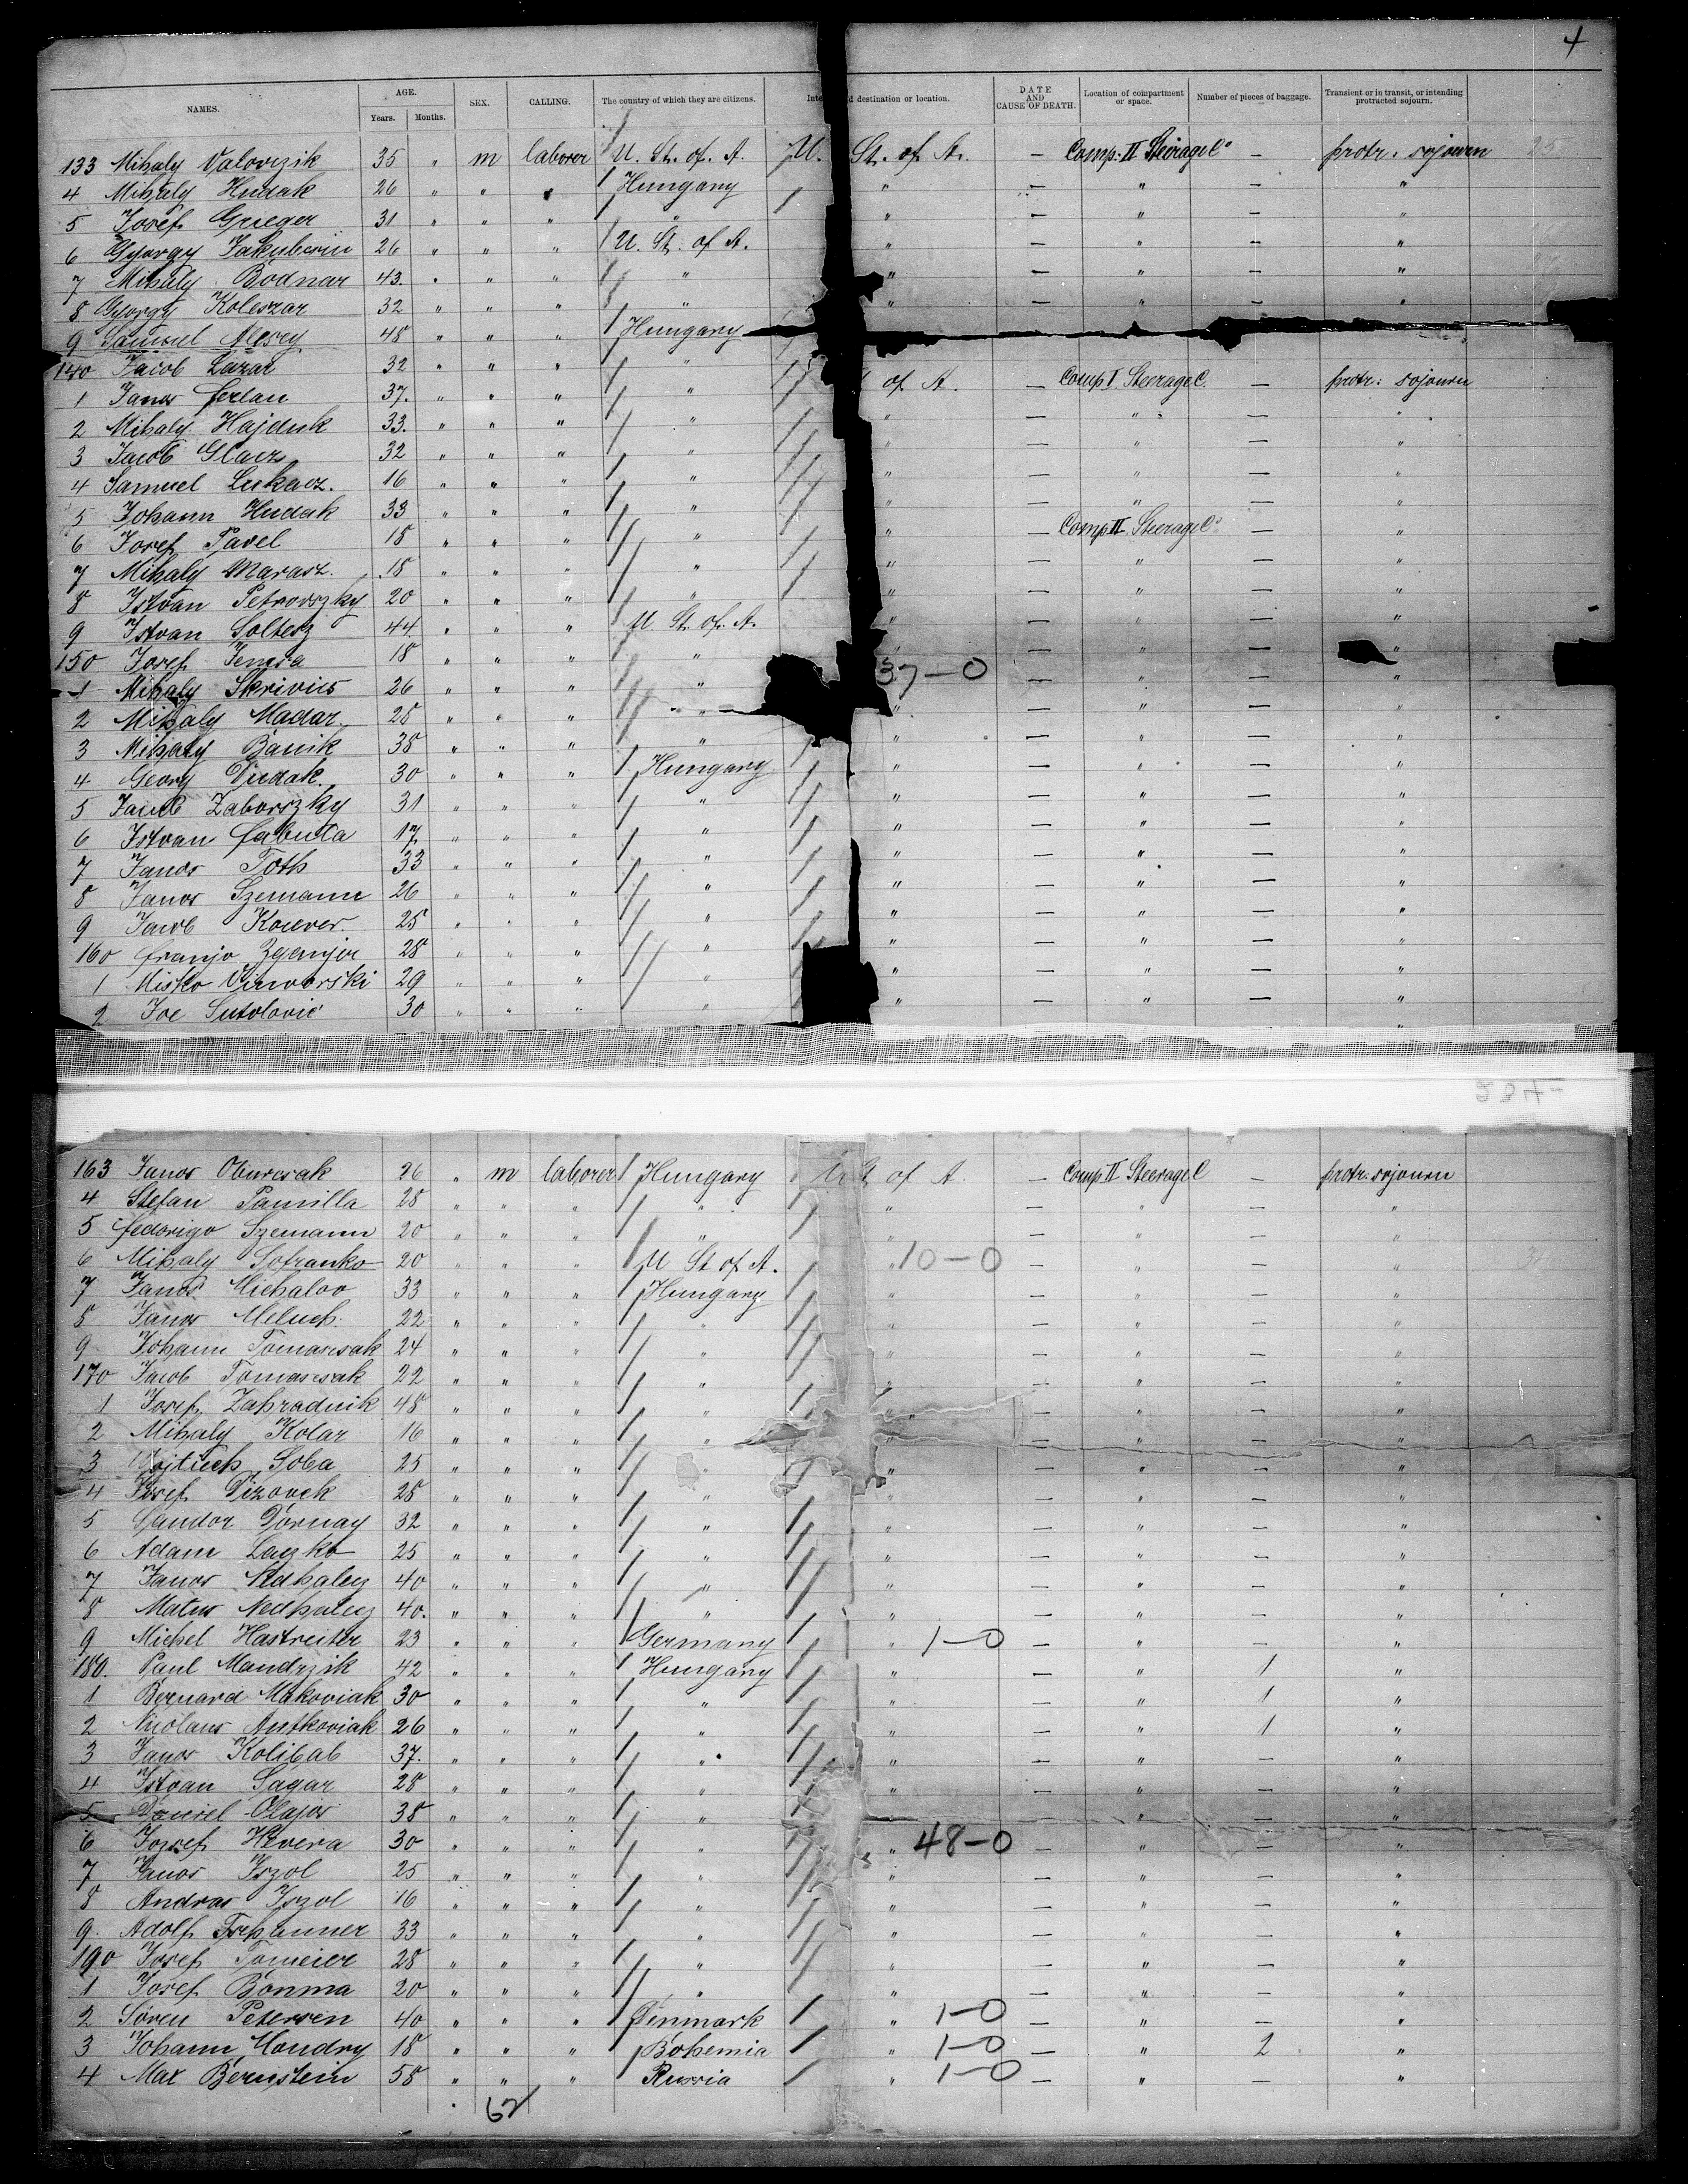 4
NAMES. AGE. Years. Months. SEX. CALLING. The country of which they are citizens. Inte d destination or location. DATE AND CAUSE OF DEATH. Location of compartment or space. Number of pieces of baggage. Transient or in transit, or intending protracted sojourn.
133 Mihaly Valovczik 35 " m laborer U. St. of. A. U. St. of A. — Comp: II Steerage C° — protr: sojourn
4 Mihaly Hudak 26 " " " Hungary " — " — "
5 Josef Grieger 31 " " " " " — " — "
6 Gyorgy 26 " " " U. St. of A. " — " — "
7 Mihaly Bodnar 43. " " " " " — " — "
8 Gyorgy Koleszar 32 " " " " " — " — "
9 Samuel 48 " " " Hungary
140 Jacob Lazar 32 " " " " of A. — Comp I Steerage C. — protr: sojourn
1 Janos Ferlan 37. " " " " " — " — "
2 Mihaly Hajduk 33. " " " " " — " — "
3 Jacob Glacz 32 " " " " " — " — "
4 Samuel Lukacz. 16 " " " " " — " — "
5 Johann Hudak 33 " " " " " — Comp II Steerage C° — "
6 Josef Pavel 18 " " " " " — " — "
7 Mihaly Marasz. 18 " " " " " — " — "
8 Istvan Petrovszky 20 " " " " " — " — "
9 Istvan Soltesz 44. " " " U. St. of. A. " — " — "
150 Josef 18 " " " " 37—0 — " —
1 Mihaly Skrivies 26 " " " " " — " — "
2 Mihaly Madar. 28 " " " " " — " — "
3 Mihaly Banik 38 " " " " " — " — "
4 Georg Dudak. 30 " " " Hungary " — " — "
5 Jacob Zaborszky 31 " " " " " — " — "
6 Istvan Cabuta 17. " " " " " — " — "
7 Janos Toth 33 " " " " " — " — "
8 Janos Szemann 26 " " " " " — " — "
9 Jacob 25 " " " " " — " — "
160 Franjo 28 " " " " " — " — "
1 Misko 29 " " " " " — " — "
2 Joe Sutolovic 30 " " " " " — " — "
163 Janos Oburcsak 26 " m laborer Hungary U St of A. — Comp. II Steerage C — protr: sojourn
4 Stefan Pamilla 28 " " " " " — " — "
5 Fedorigo Szemann 20 " " " " " — " — "
6 Mihaly Sofranko 20 " " " U St of A. " 10—0 — " — "
7 Janos Michalov 33 " " " Hungary " — " — "
8 Janos Meluch. 22 " " " " " — " — "
9 Johann Tomascsak 24 " " " " " — " — "
170 Jacob Tomascsak 22 " " " " " — " — "
1 Josef Zahradnik 48 " " " " " — " — "
2 Mihaly Kolar 16 " " " " " — " — "
3 Soba 25 " " " " " — " — "
4 Josef Dizovek 28 " " " " " — " — "
5 Sandor Dornay 32 " " " " " — " — "
6 Adam Laczko 25 " " " " " — " — "
7 Janos Nedhaley 40 " " " " " — " — "
8 Matus Nedhaley 40. " " " " " — " — "
9 Michel Hastreiter 23 " " " Germany " 1—0 — " — "
180. Paul Mandrzik 42 " " " Hungary " — " 1 "
1 Bernard Makoviak 30 " " " " " — " 1 "
2 Nicolaus Antkoviak 26 " " " " " — " 1 "
3 Janos Kolibab 37. " " " " " — " — "
4 Istvan Sagar 28 " " " " " — " — "
5 Daniel Olajos 38 " " " " " — " — "
6 Jozsef Hevera 30 " " " " " 48—0 — " — "
7 Janos Iszol 25 " " " " " — " — "
8 Andras Iszol 16 " " " " " — " — "
9. Adolf 33 " " " " " — " — "
190 Josef Tomeier 28 " " " " " — " — "
1 Josef Bonma 20 " " " " " — " — "
2 Sören Petersen 40 " " " Denmark " 1—0 — " — "
3 Johann Houdry 18 " " " Bohemia " 1—0 — " 2 "
4 Max Bernstein 58 " " " Russia " 1—0 — " — "
62